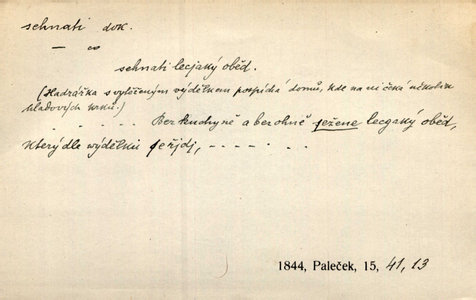 sehnati dok.
— co
sehnati lecjaký oběd.
(Hadrářka s vytěženým výdělkem pospíchá domů, kde na ni čeká několik
hladových krků.)
. . . . . Bez kuchyně a bez ohně sežene lecgaký oběd,
který dle výdělku se řjdj, — . — . .
1844, Paleček, 15, 41, 13